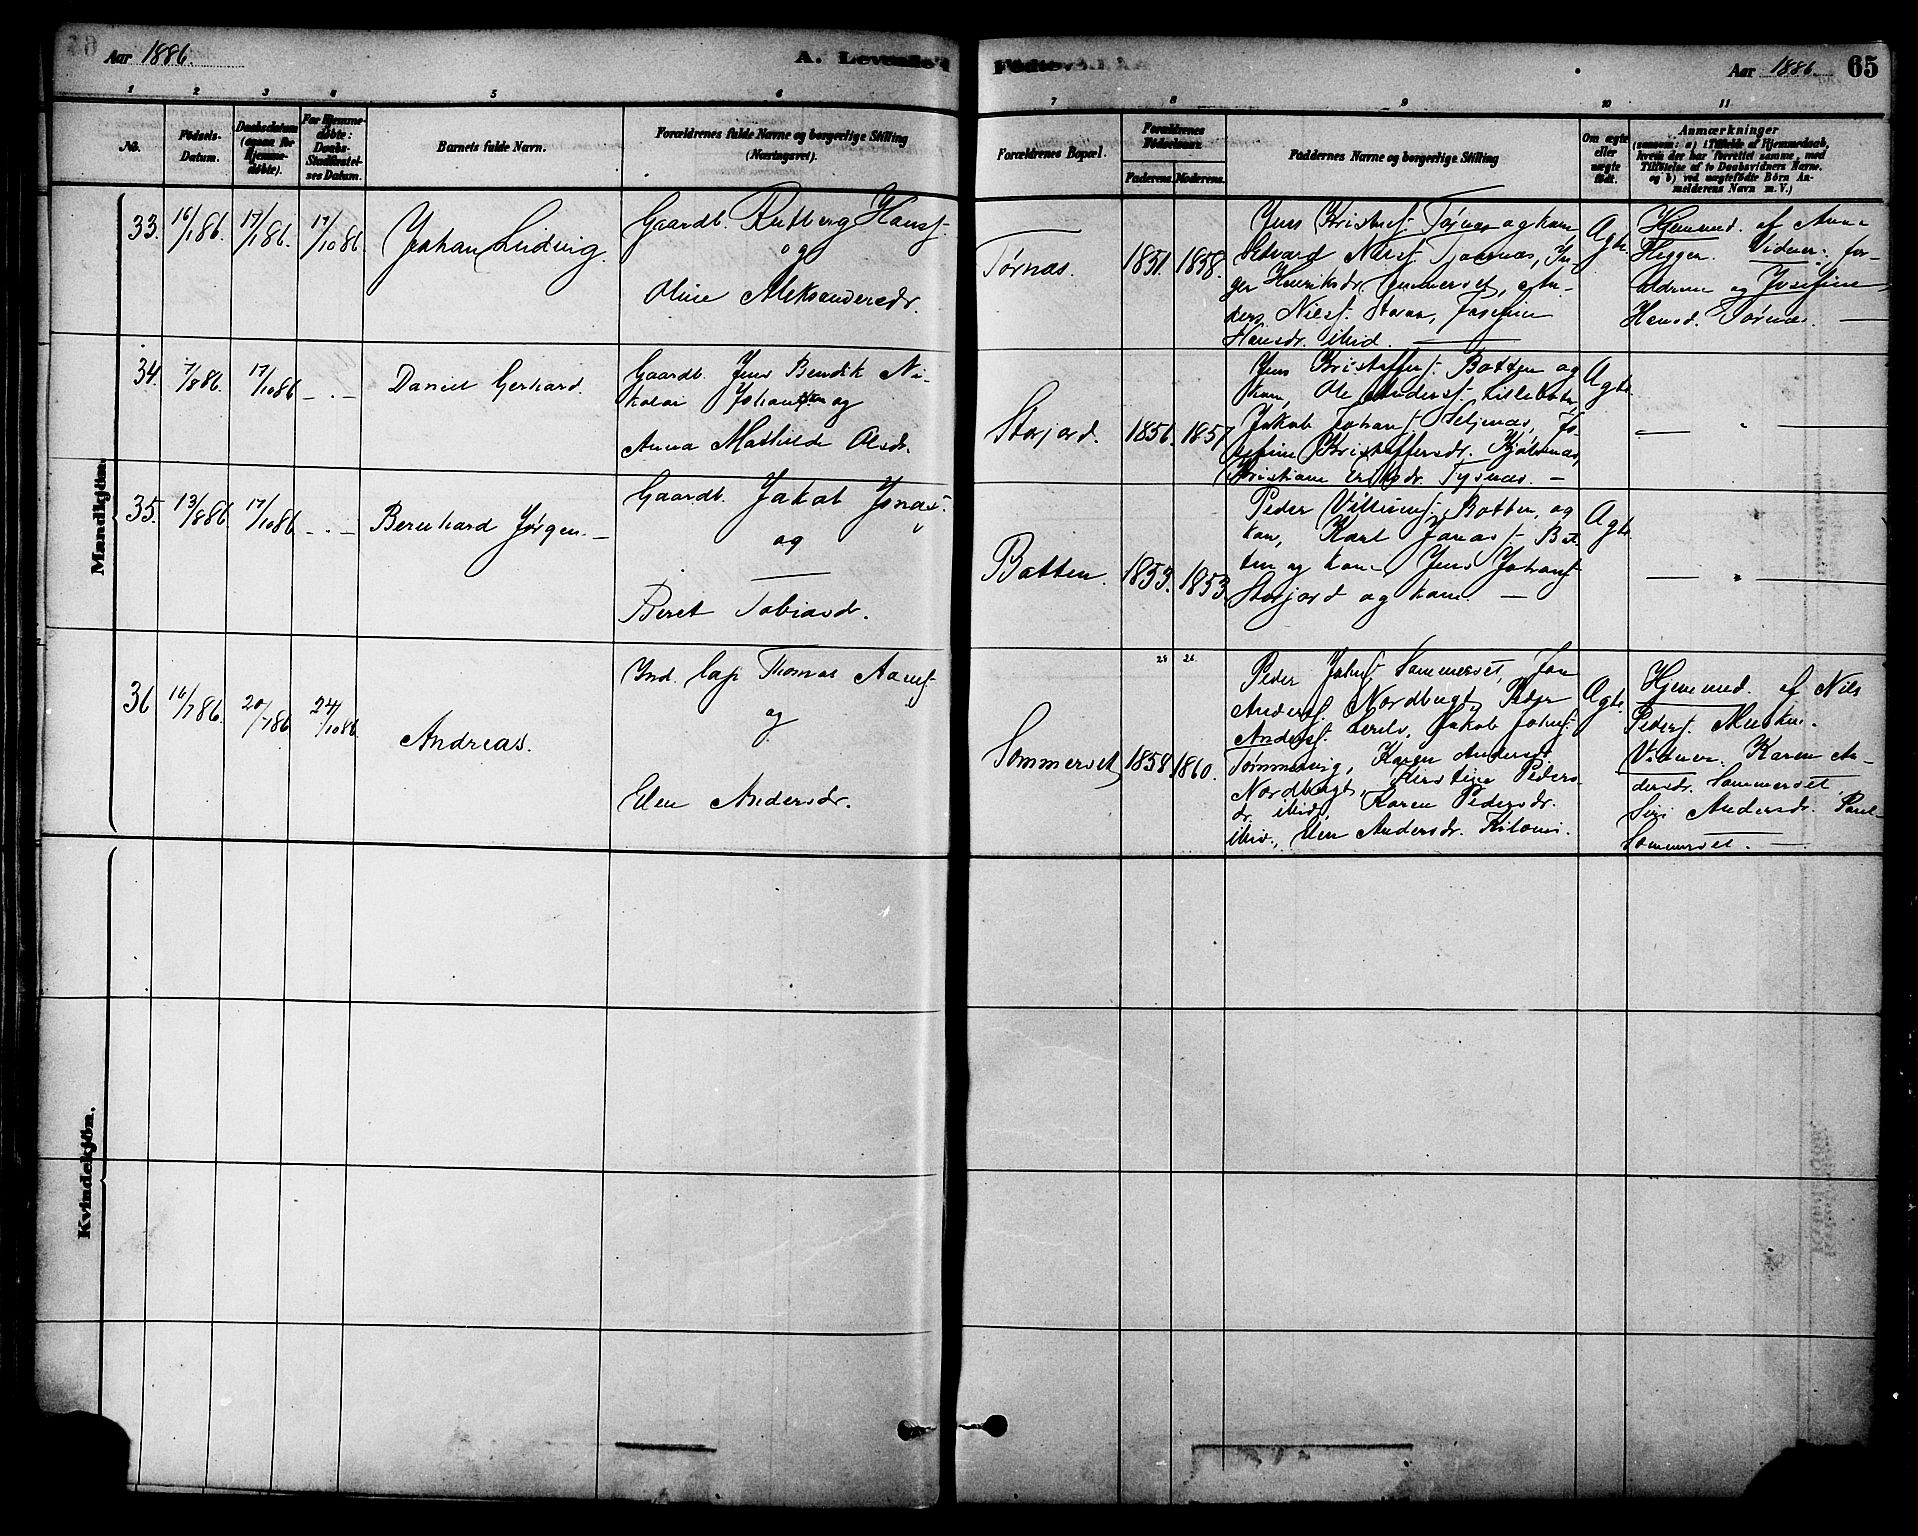 Aar 1886. A. Levende
Fødte. Aar 1886. 65
1 2 3 4 5 6 7 8 9 10 11
No.
Fødsels-Datum.
Daabsdatum (ogsaa for Hjemme-døbte).
For Hjemme-døbte: Daabs-Stadfæstel-ses Datum.
Barnets fulde Navn.
Forældrenes fulde Navne og borgerlige Stilling (Næringsvei).
Forældrenes Bopæl.
Forældrenes Fødselsaar.
Faderens. Moderens.
Faddernes Navne og borgerlige Stilling
Om ægte eller uægte født.
Anmærkninger
(saasom: a) i Tilfælde af Hjemmedaab,
hvem der har forrettet samme, med
Tilføielse af to Daabsvidners Navne.
og b) ved uægtefødte Børn An-
melderens Navn m. V.)
Mandkjøn.
33. 16/1 86. 17/1 86. 17/10 86. Johan Ludvig.
Gaardb. Rutberg Hansf.
og
Oline Aleksandersdr.
Tørnæs. 1851. 1858.
Jens Kristensf. Tørnæs og kone,
Edvard Nilsf. Tjærnæs, In-
ger Henriksdr. Sommerset, An-
ders Nilsf. Storaa, Josefine
Hansdr. ibid. —
Ægte.
Hjemmed. af Anne
Heggen. Vidner: for-
ældrene og Josefine
Hansd. Tørnæs. —
34. 7/8 86. 17/10 86 — . — Daniel Gerhard.
Gaardb. Jens Bendik Ni-
kolai Johansen og
Anna Mathilde Olsdr.
Storjord. 1856. 1857
Jens Kristoffersf. Botten og
kone, Ole Andersf. Lillebotn,
Jakob Johansf. Seljenæs, Jo-
sefine Kristoffersdr. Kjølsnæs,
Kristiane Eriksdr. Tysnæs. —
Ægte.
— " —
35. 13/8 86. 17/10 86 — . — Bernhard Jørgen. —
Gaardb. Jakob Jonasf.
og
Beret Tobiasd.
Botten. 1853. 1853
Peder Villumsf. Botten, og
kone, Karl Jonasf. Bot-
ten og kone, Jens Johansf.
Storjord og kone. —
Ægte.
— " —
36 16/7 86. 20/7 86 24/10 86. Andreas.
Ind. lap Thomas Aamf.
og
Elen Andersdr.
Sommerset 1858 1860.
28 26
Peder Johnsf. Sommerset, Jon
Andersf. Nordbugt, Peder
Andersf. Jakob Johnsf.
Tømmernæs, Karen Andersdr.
Nordbugt, Kirstine Peders-
dr. ibid, Karen Pedersdr.
ibid., Elen Andersdr. Kilomi.
Ægte.
Hjemmed. af Nils
Pedersf. Musken.
Vidner. Karen An-
dersdr. Sommerset,
Siri Andersdr. Paul-
Sommerset. —
Kvindekjøn.